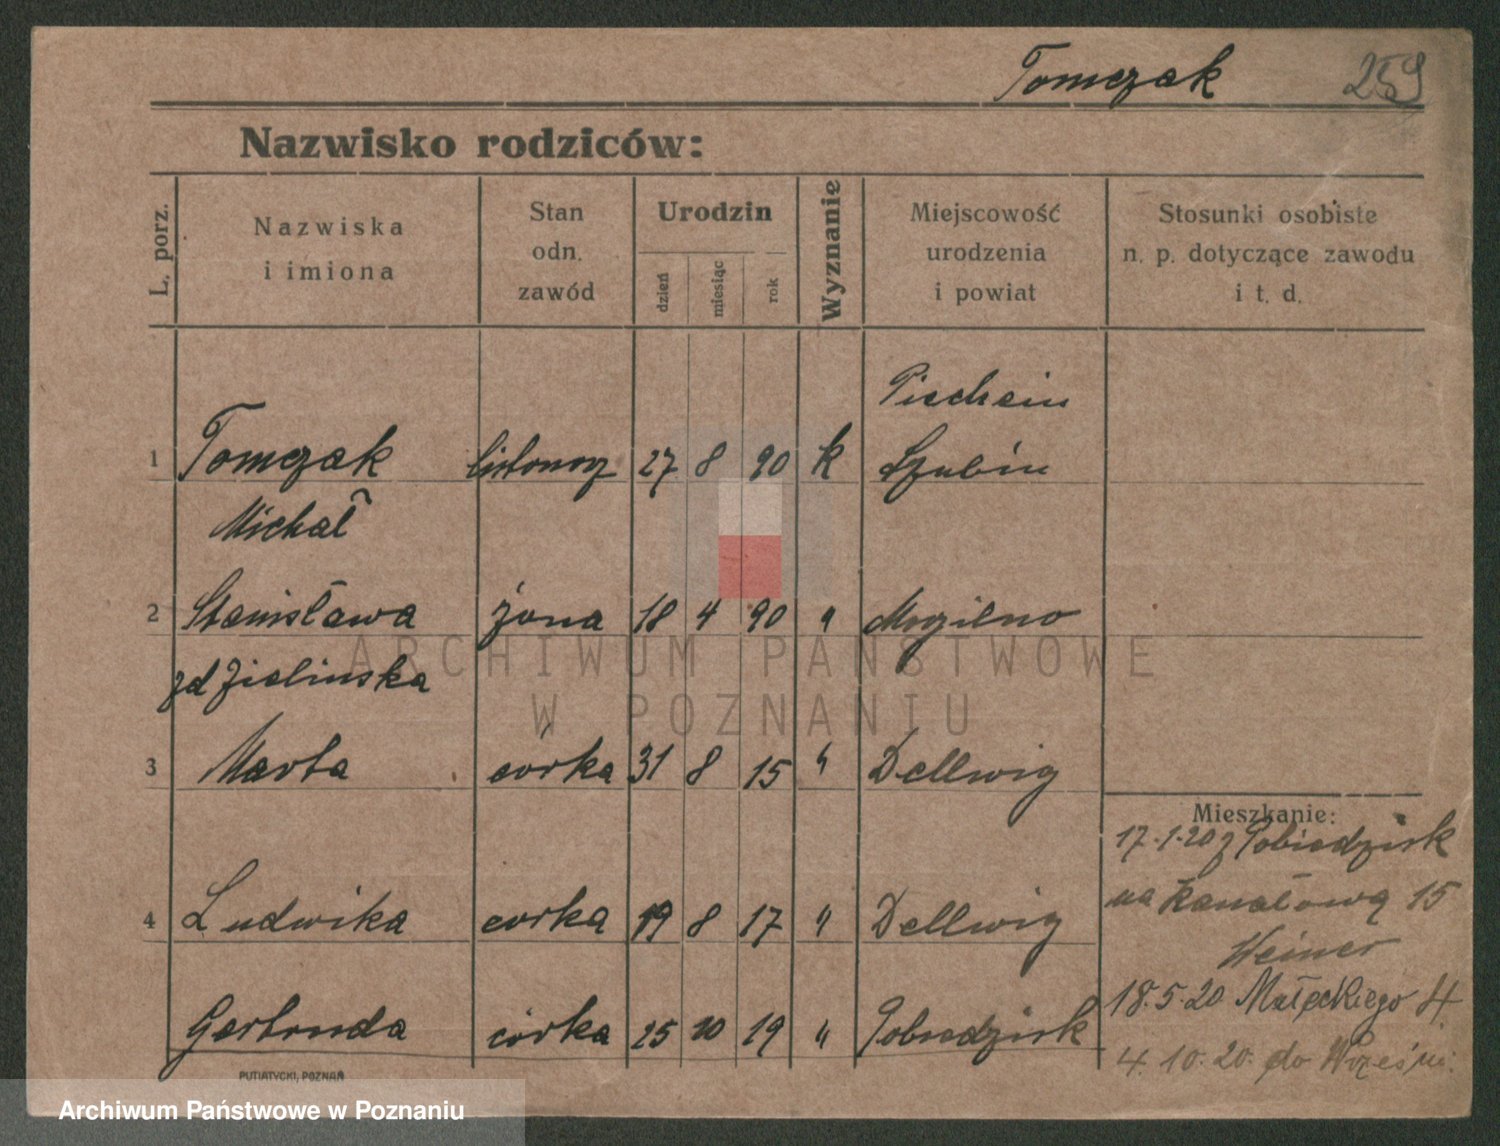 Tomczak 259
Nazwisko rodziców:
L. porz.
Nazwiska
i imiona
Stan
odn.
zawód
Urodzin
dzień
miesiąc
rok
Wyznanie
Miejscowość
urodzenia
i powiat
Stosunki osobiste
n. p. dotyczące zawodu
i t. d.
Piechcin
1 Tomczak listonosz 27 8 90 k Szubin
Michał
2 Stanisława żona 18 4 90 " Mogilno
zd Zielinska
3 Marta córka 31 8 15 " Dellwig
4 Ludwika corka 19 8 17 " Dellwig
Gertruda córka 25 10 19 " Pobiedzisk
Mieszkanie:
17.1.20 z Pobiedzisk
na Kanałową 15
Weiner
18.5.20 Małeckiego 4.
4.10.20. do Wrześni.
PUTIATYCKI, POZNAŃ
ARCHIWUM PAŃSTWOWE
W POZNANIU
Archiwum Państwowe w Poznaniu